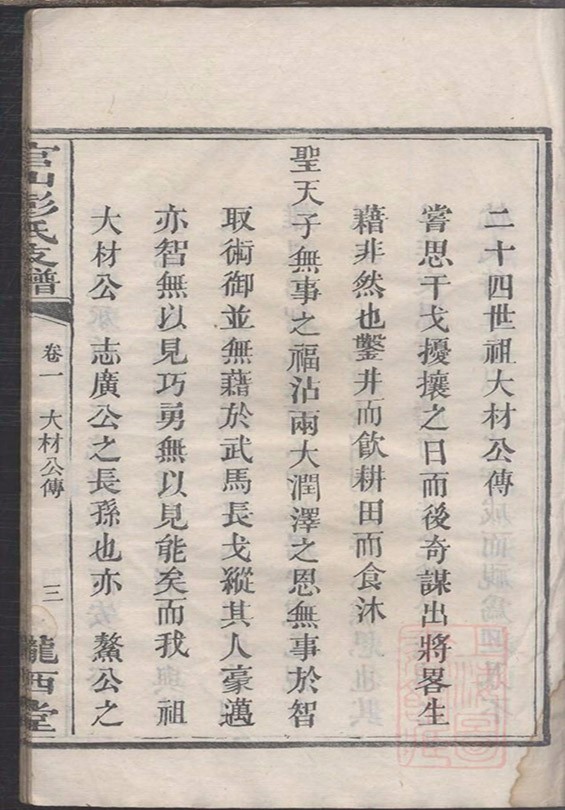 二十四世祖大材公傳
嘗思干戈擾攘之日而後奇謀出將畧生
藉非然也鑿井而飲耕田而食沐
聖天子無事之福沾兩大潤澤之恩無事於智
取術御並無藉於武馬長戈縱其人豪邁
亦智無以見巧勇無以見能矣而我 祖
大材公 志廣公之長孫也亦 鰲公之
官山彭氏支譜
卷一 大材公傳
三
隴西堂